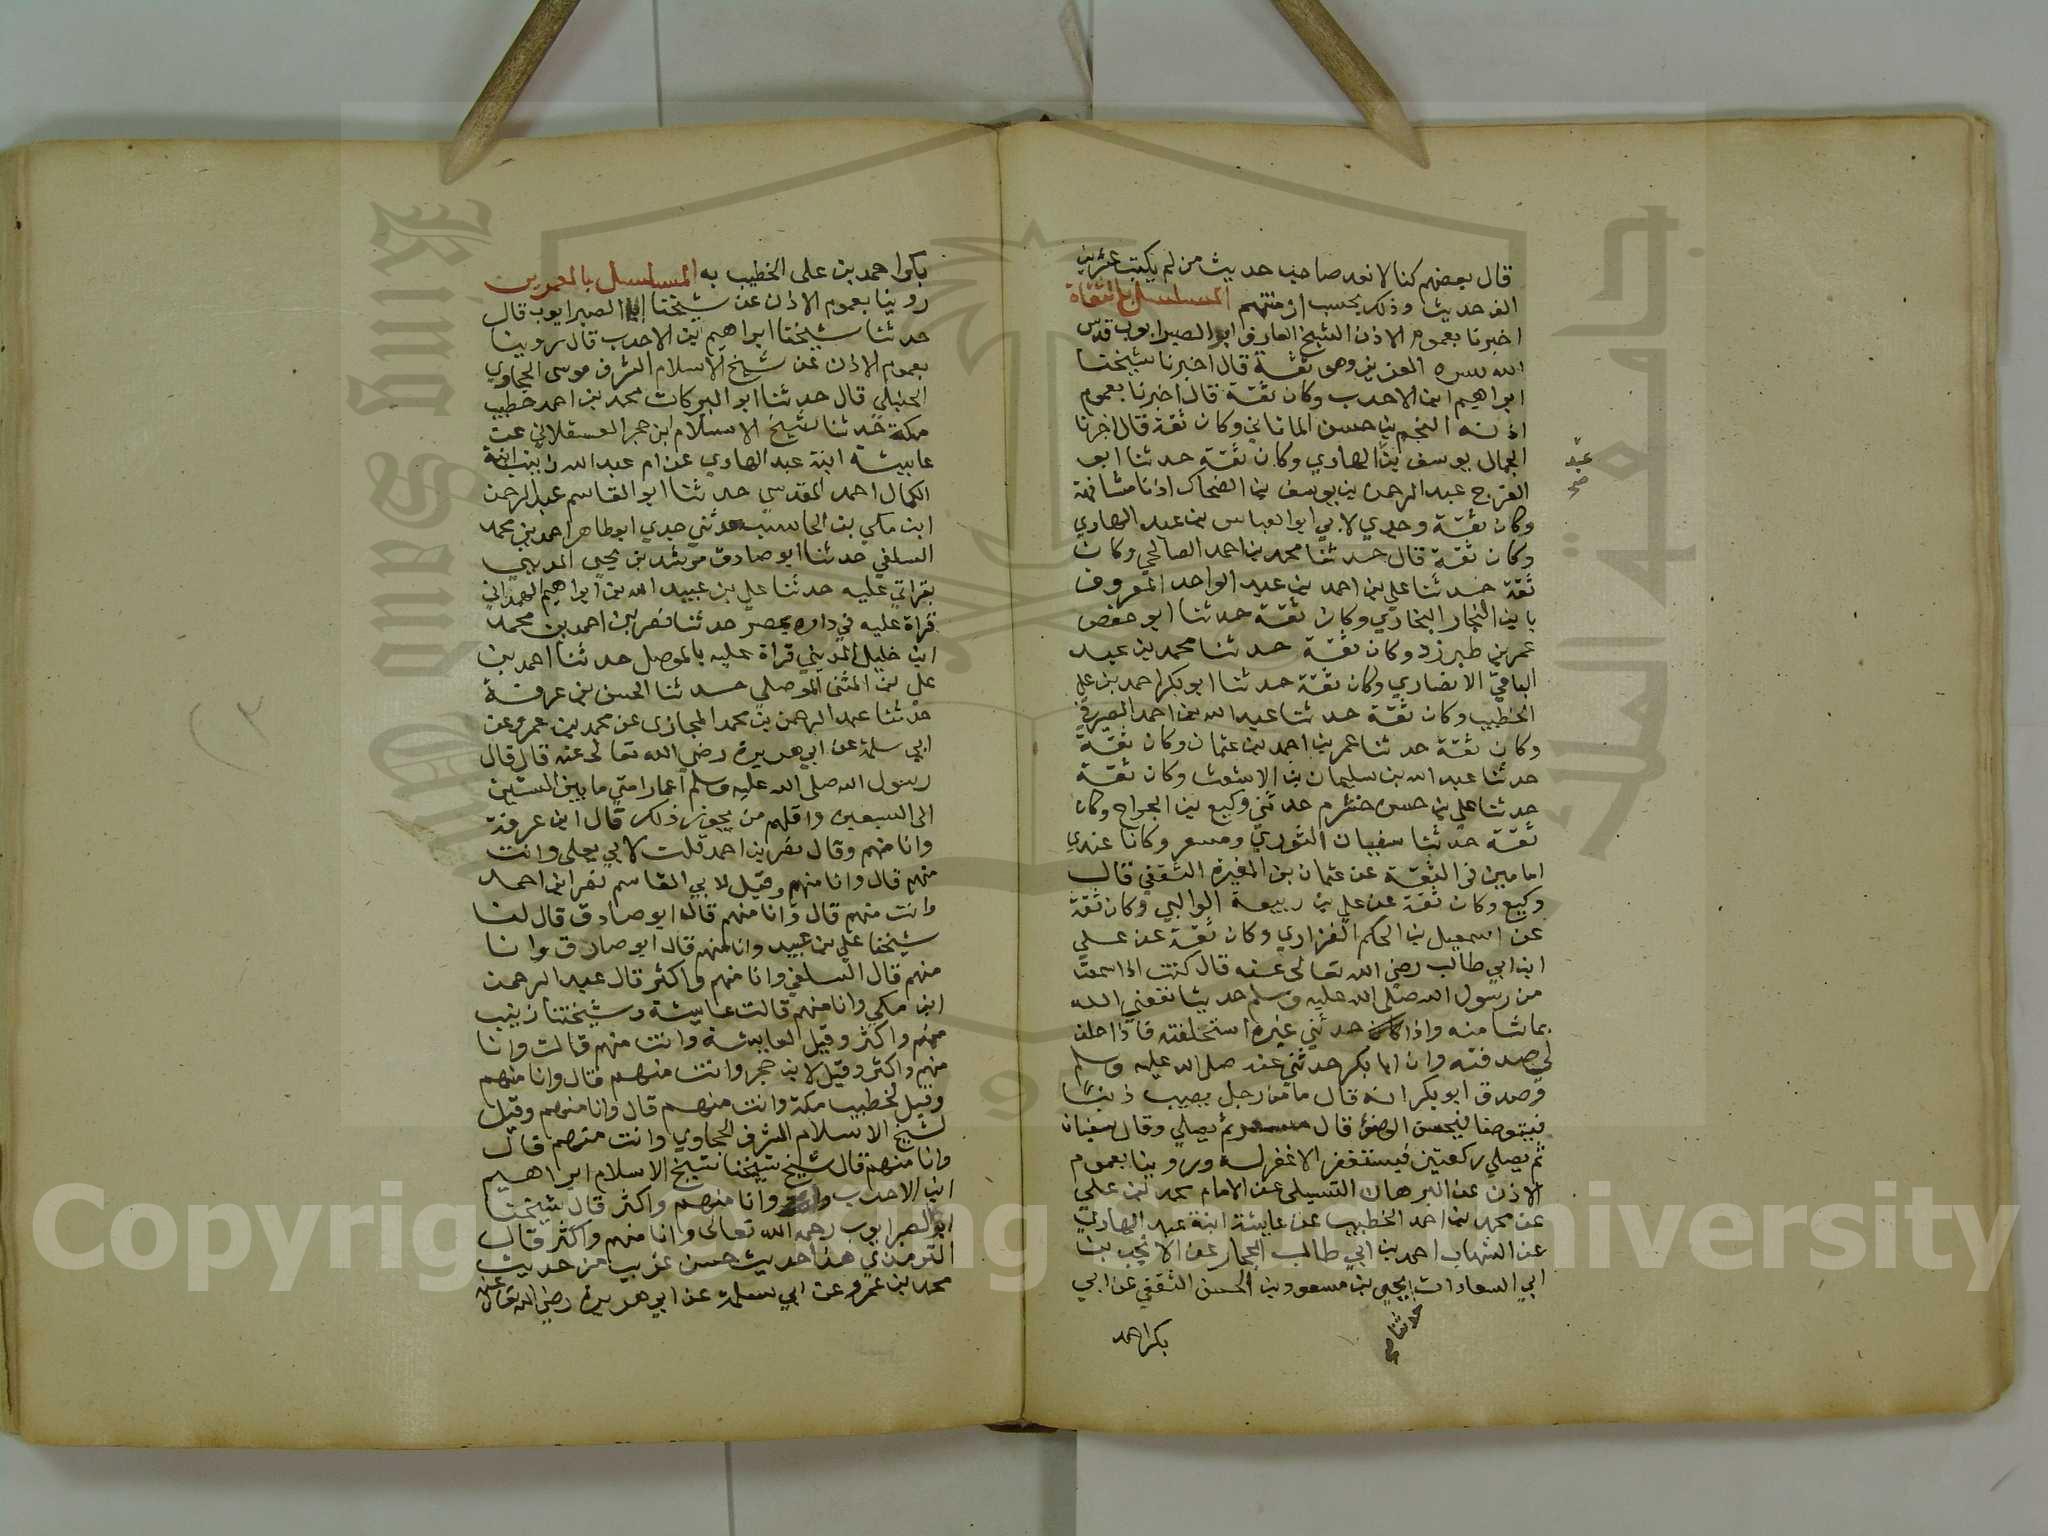 قال بعضهم كنا لا نعد صاحب حديث من لم يكتب عشرين
الف حديث وذلك بحسب ازمنتهم المسلسل بالثقاة
اخبرنا بعموم الاذن الشيخ العارف ابو الصبر ايوب قدس
الله سره العزيز وهو ثقة قال اخبرنا شيخنا
ابراهيم ابن الاحدب وكان ثقة قال اخبرنا بعموم
اذنه النجم بن حسن الماتاني وكان ثقة قال اخبرنا
الجمال يوسف بن الهادي وكان ثقة حدثنا ابو
عبد
صح
الفرج عبد الرحمن بن يوسف بن الضحاك اذنا مشافهة
وكان ثقة وجدي لابي ابو العباس بن عبد الهادي
وكان ثقة قال حدثنا محمد بن احمد الصالحي وكان
ثقة حدثنا علي بن احمد بن عبد الواحد المعروف
بابن النجار البخاري وكان ثقة حدثنا ابو حفص
عمر بن طبرزد وكان ثقة حدثنا محمد بن عبد
الباقي الانصاري وكان ثقة حدثنا ابو بكر احمد بن علي
الخطيب وكان ثقة حدثنا عبيد الله بن احمد الصيرفي
وكان ثقة حدثنا عمر بن احمد بن عثمان وكان ثقة
حدثنا عبد الله بن سليمان بن الاشعث وكان ثقة
حدثنا علي بن حسن خشرم حدثني وكيع بن الجراح وكان
ثقة حدثنا سفيان الثوري ومسعر وكانا عندي
امامين في الثقة عن عثمان بن المغيرة الثقفي قال
وكيع وكان ثقة عن علي بن ربيعة الوالبي وكان ثقة
عن اسمعيل بن الحكم الفزاري وكان ثقة عن علي
ابن ابي طالب رضي الله تعالى عنه قال كنت اذا سمعت
من رسول الله صلى الله عليه وسلم حديثا نفعني الله
بما شا منه واذا كان حدثني غيره استحلفته فاذا حلف
لي صدقته وان ابا بكر حدثني عنه صلى الله عليه وسلم
وصدق ابو بكر انه قال ما من رجل يصيب ذنبا
فيتوضا فيحسن الوضؤ قال مسعر ثم يصلي وقال سفيان
ثم يصلي ركعتين فيستغفر الا غفر له وروينا بعموم
الاذن عن البرهان التسيلي عن الامام محمد بن علي
عن محمد بن احمد الخطيب عن عايشة ابنة عبد الهادي
عن الشهاب احمد بن ابي طالب الحجار عن الانجب بن
ابي السعادات يحيى بن مسعود بن الحسن الثقفي عن ابي
حدثنا صح
بكر احمد
بكر احمد بن علي الخطيب به المسلسل بالمعمرين
روينا بعموم الاذن عن شيخنا ابو الصبر ايوب قال
حدثنا شيخنا ابراهيم بن الاحدب قال روينا
بعموم الاذن عن شيخ الاسلام الشرف موسى الحجاوي
الحنبلي قال حدثنا ابو البركات محمد بن احمد خطيب
مكة حدثنا شيخ الاسلام ابن حجر العسقلاني عن
عايشة ابنة عبد الهادي عن ام عبد الله زينب ابنة
الكمال احمد المقدسي حدثنا ابو القاسم عبد الرحمن
ابن مكي بن الحاسب حدثني جدي ابو طاهر احمد بن محمد
السلفي حدثنا ابو صادق مرشد بن يحيى المديني
بقراتي عليه حدثنا علي بن عبيد الله بن ابراهيم الهمداني
قراة عليه في داره بمصر حدثنا نصر بن احمد بن محمد
ابن خليل المديني قراة عليه بالموصل حدثنا احمد بن
علي بن المثنى الموصلي حدثنا الحسن بن عرفة
حدثنا عبد الرحمن بن محمد المحاربي عن محمد بن عمرو عن
ابي سلمة عن ابي هريرة رضي الله تعالى عنه قال قال
رسول الله صلى الله عليه وسلم اعمار امتي ما بين الستين
الى السبعين واقلهم من يجوز ذلك قال ابن عرفة
وانا منهم وقال نصر بن احمد قلت لابي يعلى وانت
منهم قال وانا منهم وقيل لابي القاسم نصر ابن احمد
وانت منهم قال وانا منهم قاله ابو صادق قال لنا
شيخنا علي بن عبيد وانا منهم قال ابو صادق وانا
منهم قال السلفي وانا منهم واكثر قال عبد الرحمن
ابن مكي وانا منهم قالت عايشة وشيختنا زينب
منهم واكثر وقيل لعايشة وانت منهم قالت وانا
منهم واكثر وقيل لابن حجر وانت منهم قال وانا منهم
وقيل لخطيب مكة وانت منهم قال وانا منهم وقيل
لشيخ الاسلام الشرف الحجاوي وانت منهم قال
وانا منهم قال شيخ شيخنا شيخ الاسلام ابراهيم
ابن الاحدب وانا منهم واكثر قال شيخنا
ابو الصبر ايوب رحمه الله تعالى وانا منهم واكثر قال
الترمذي هذا حديث حسن غريب من حديث
محمد بن عمرو عن ابي سلمة عن ابي هريرة رضي الله تعالى عنه
٣
جامعة الملك سعود
King Saud University
1957
Copyright © King Saud University